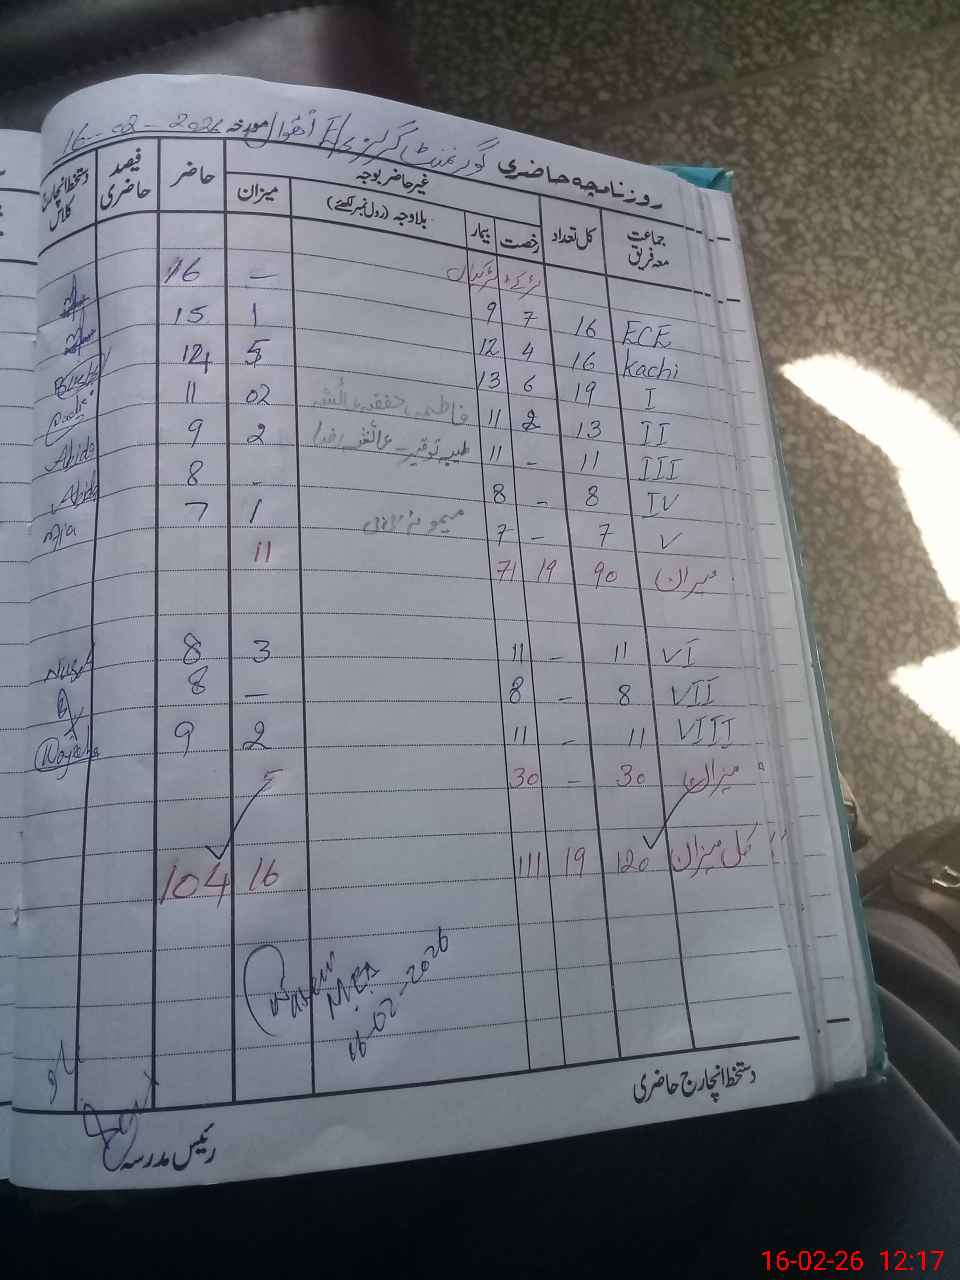 روزنامچہ حاضری گورنمنٹ گرلز E/S اٹھوال مورخہ 16-02-2026
جماعت معہ فریق کل تعداد غیر حاضر بوجہ حاضر فیصد حاضری دستخط انچارج کلاس
رخصت بیمار بلاوجہ (رول نمبر لکھئے) میزان
لڑکے لڑکیاں – 16
ECE 16 7 9 1 15
Kachi 16 4 12 5 14
I 19 6 13 02 11
II 13 2 11 فاطمہ 2 9
III 11 - 11 طیب توقیر - 8
IV 8 - 8 1 7
V 7 - 7 میمونہ
میزان 90 19 71 11
VI 11 - 11 3 8 
VII 8 - 8 – 8
VIII 11 - 11 2 9
میزان 30 - 30 5
کل میزان 120 19 111 16 104
MEA
16-02-2026
دستخط انچارج حاضری
رئیس مدرسہ
16-02-26 12:17